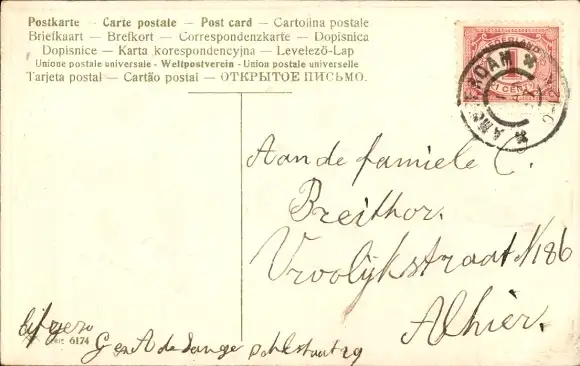 Postkarte – Carte postale – Post card – Cartolina postale
Briefkaart – Brefkort – Correspondenzkarte – Dopisnica
Dopisnice – Karta korespondencyjna – Levelező-Lap
Unione postale universale - Weltpostverein - Union postale universelle
Tarjeta postal – Cartão postal – ОТКРЫТОЕ ПИСЬМО.
NEDERLAND
1
1 CENT
Aan de famiele C.
Breithor.
Vroolijkstraat N186
Alhier.
6174